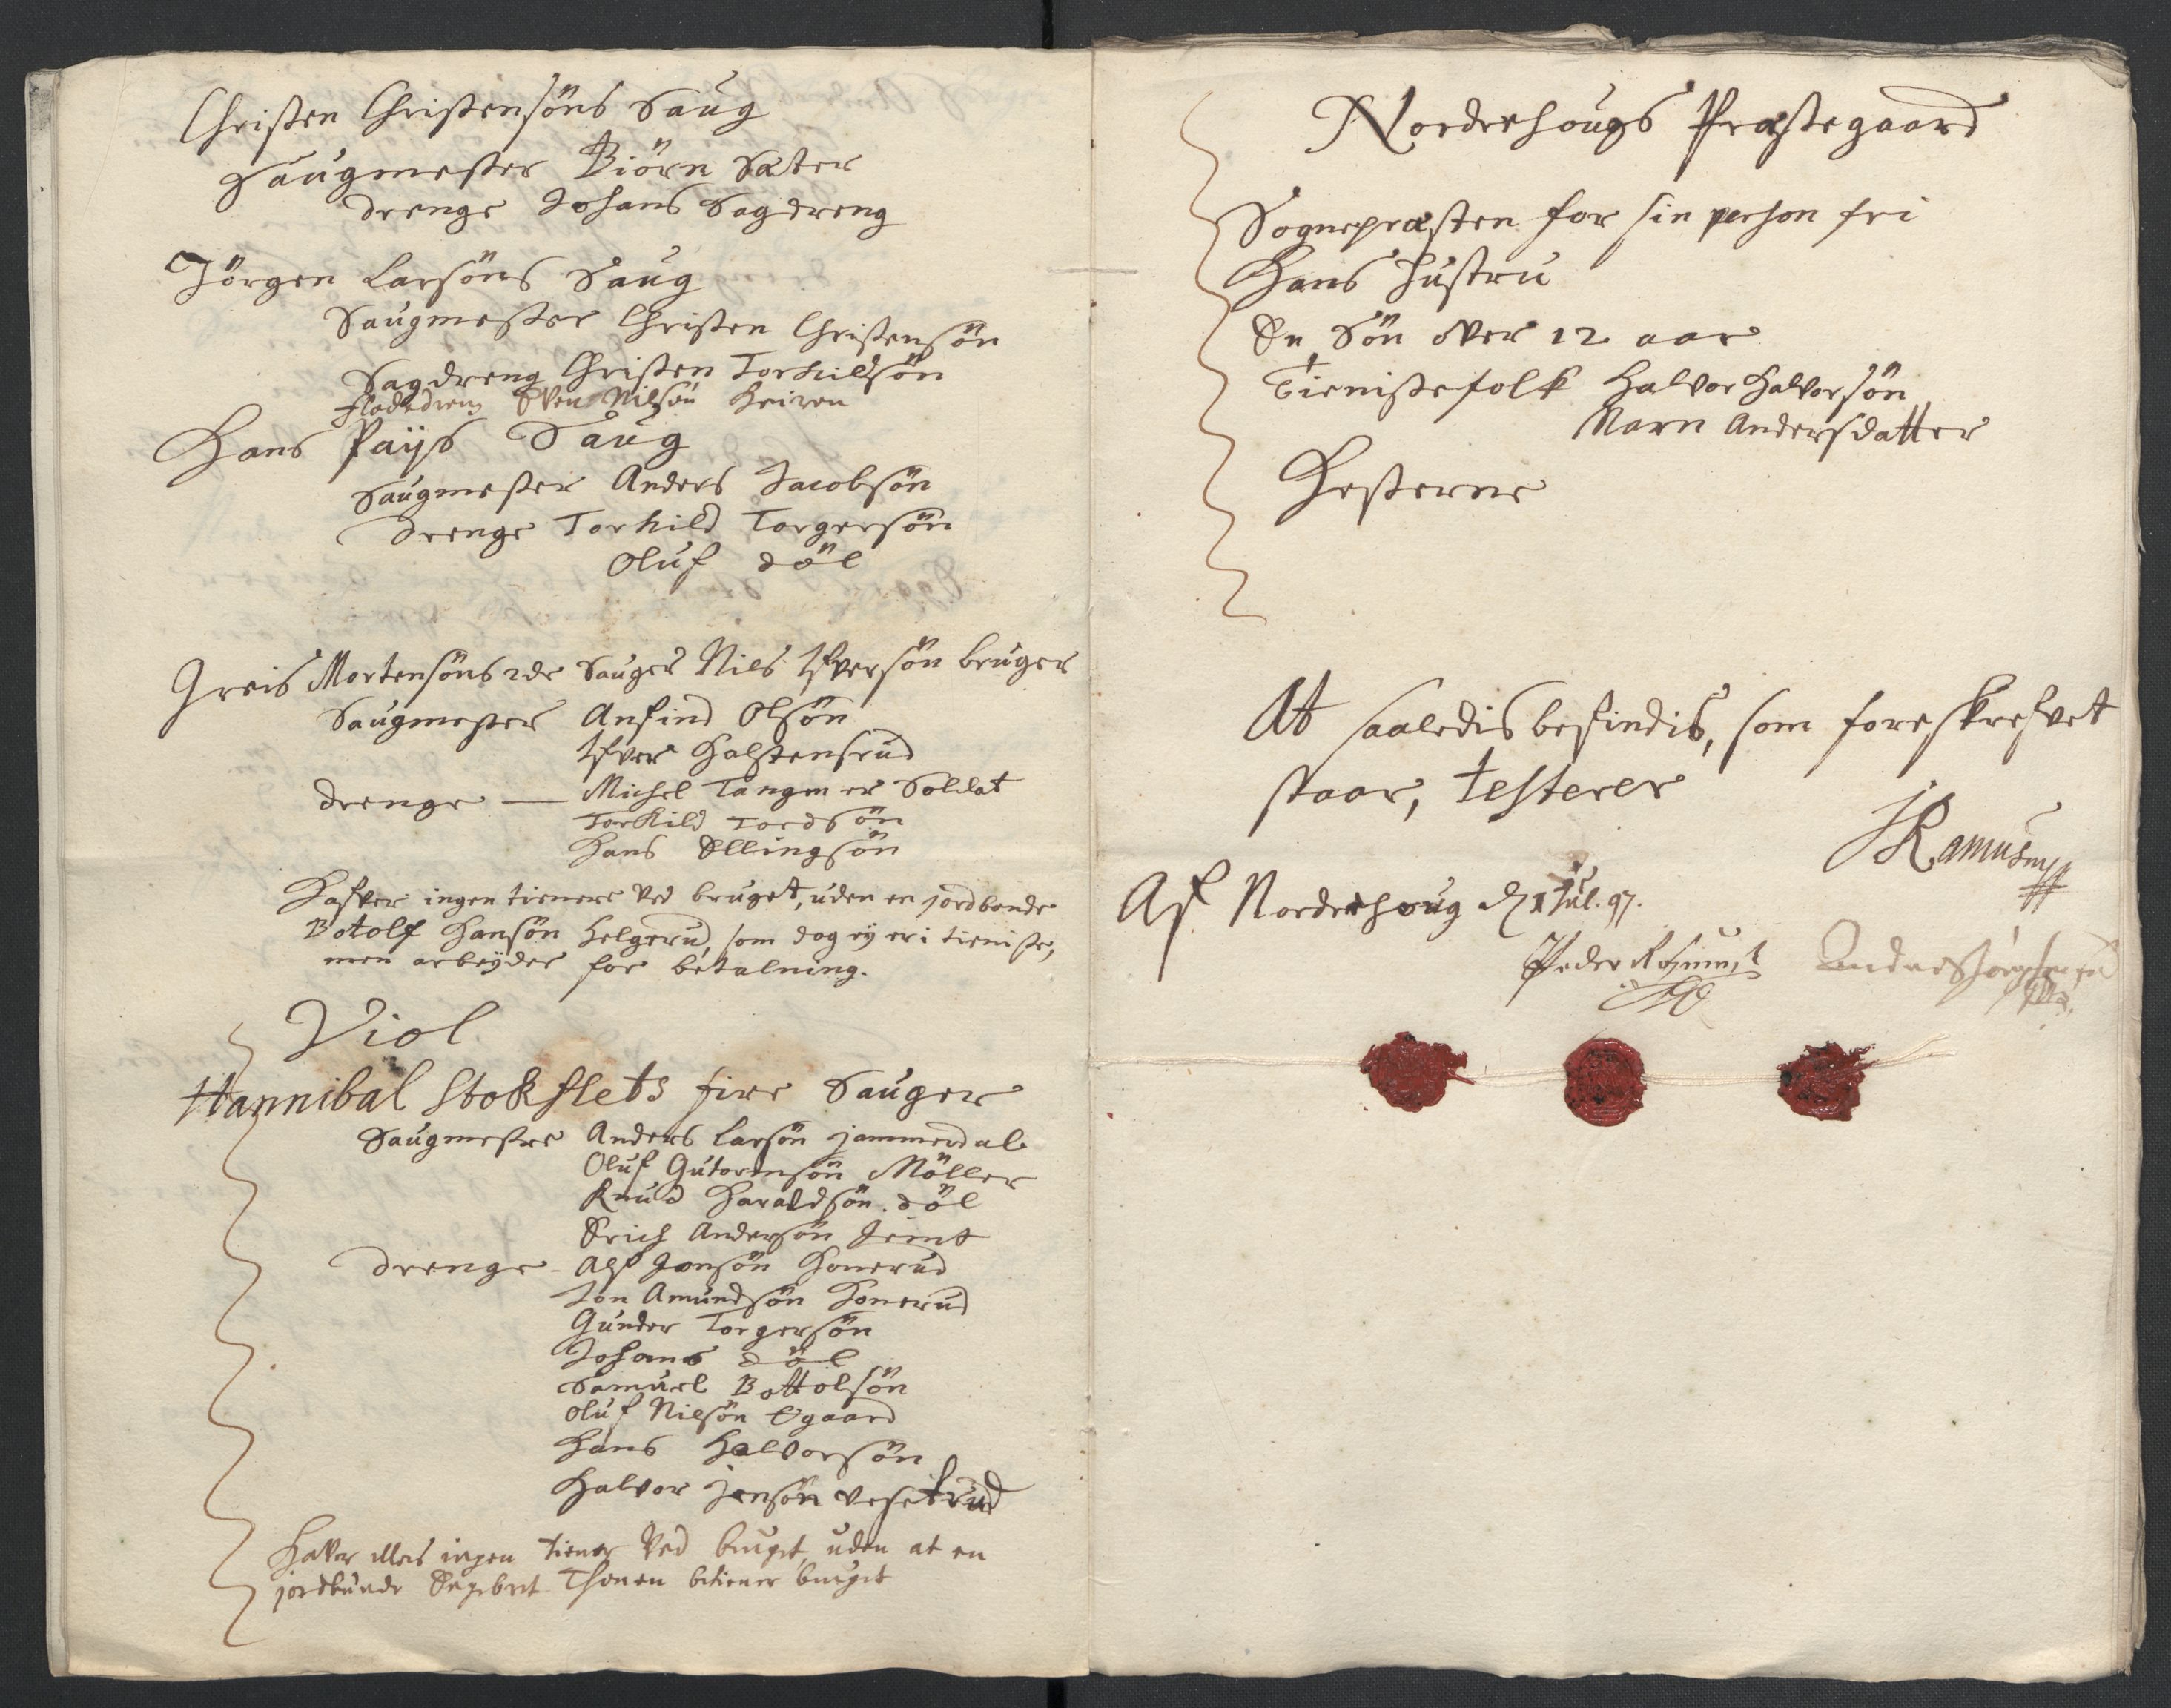 Christen Christensöns Saug
Saugmester Biörn Sæter
drenge Johans Sagdreng
Jörgen Larsöns Saug
Saugmester Christen Christensön
Sagdreng Christen Torkildsön
Flodedreng Sven Nilsön
Hans Paÿs Saug
Saugmester Anders Jacobsön
drenge Torkild Torgersön
Oluf döl
Greis Mortensöns 2de Sauger Nils Ifversön bruger
Saugmester Anfind Olsön
Ifver Halstensrud
drenge — Michel Tangen er Soldat
Torkild Tordsön
Hans Ellingsön
Hafver ingen tienere ved bruget, uden en jordbonde
Botolf Hansön Helgerud, som dog ey er i tieniste,
men arbeyder for betalning.
Viol
Hannibal Stokflets fire Sauger
Saugmestre Anders Larsön jammerdal
Oluf Gutormsön Möller
Knud Haraldsön döl
Erich Andersön Jemt
drenge Alf Jonsön Honerud
Jon Amundsön Honerud
Gunder Torgersön
Johans döl
Samuel Bottolsön
Oluf Nilsön Ögaard
Hans Halvorsön
Halvor Jensön Vesetrud
Haver ellers ingen tiener ved bruget, uden at en
jordbunde Engebret Thonen betiener bruget
Norderhougs Præstegaard
Sognepræsten for sin person fri
Hans Hustru
En Sön over 12 aar
Tienistefolk Halvor Halvorsön
Marn Andersdatter
Hesterne
At saaledis befindis, som foreskrefvet
staar, testerer
JRamus
Af Norderhoug d 1 Jul. 97.
Peder